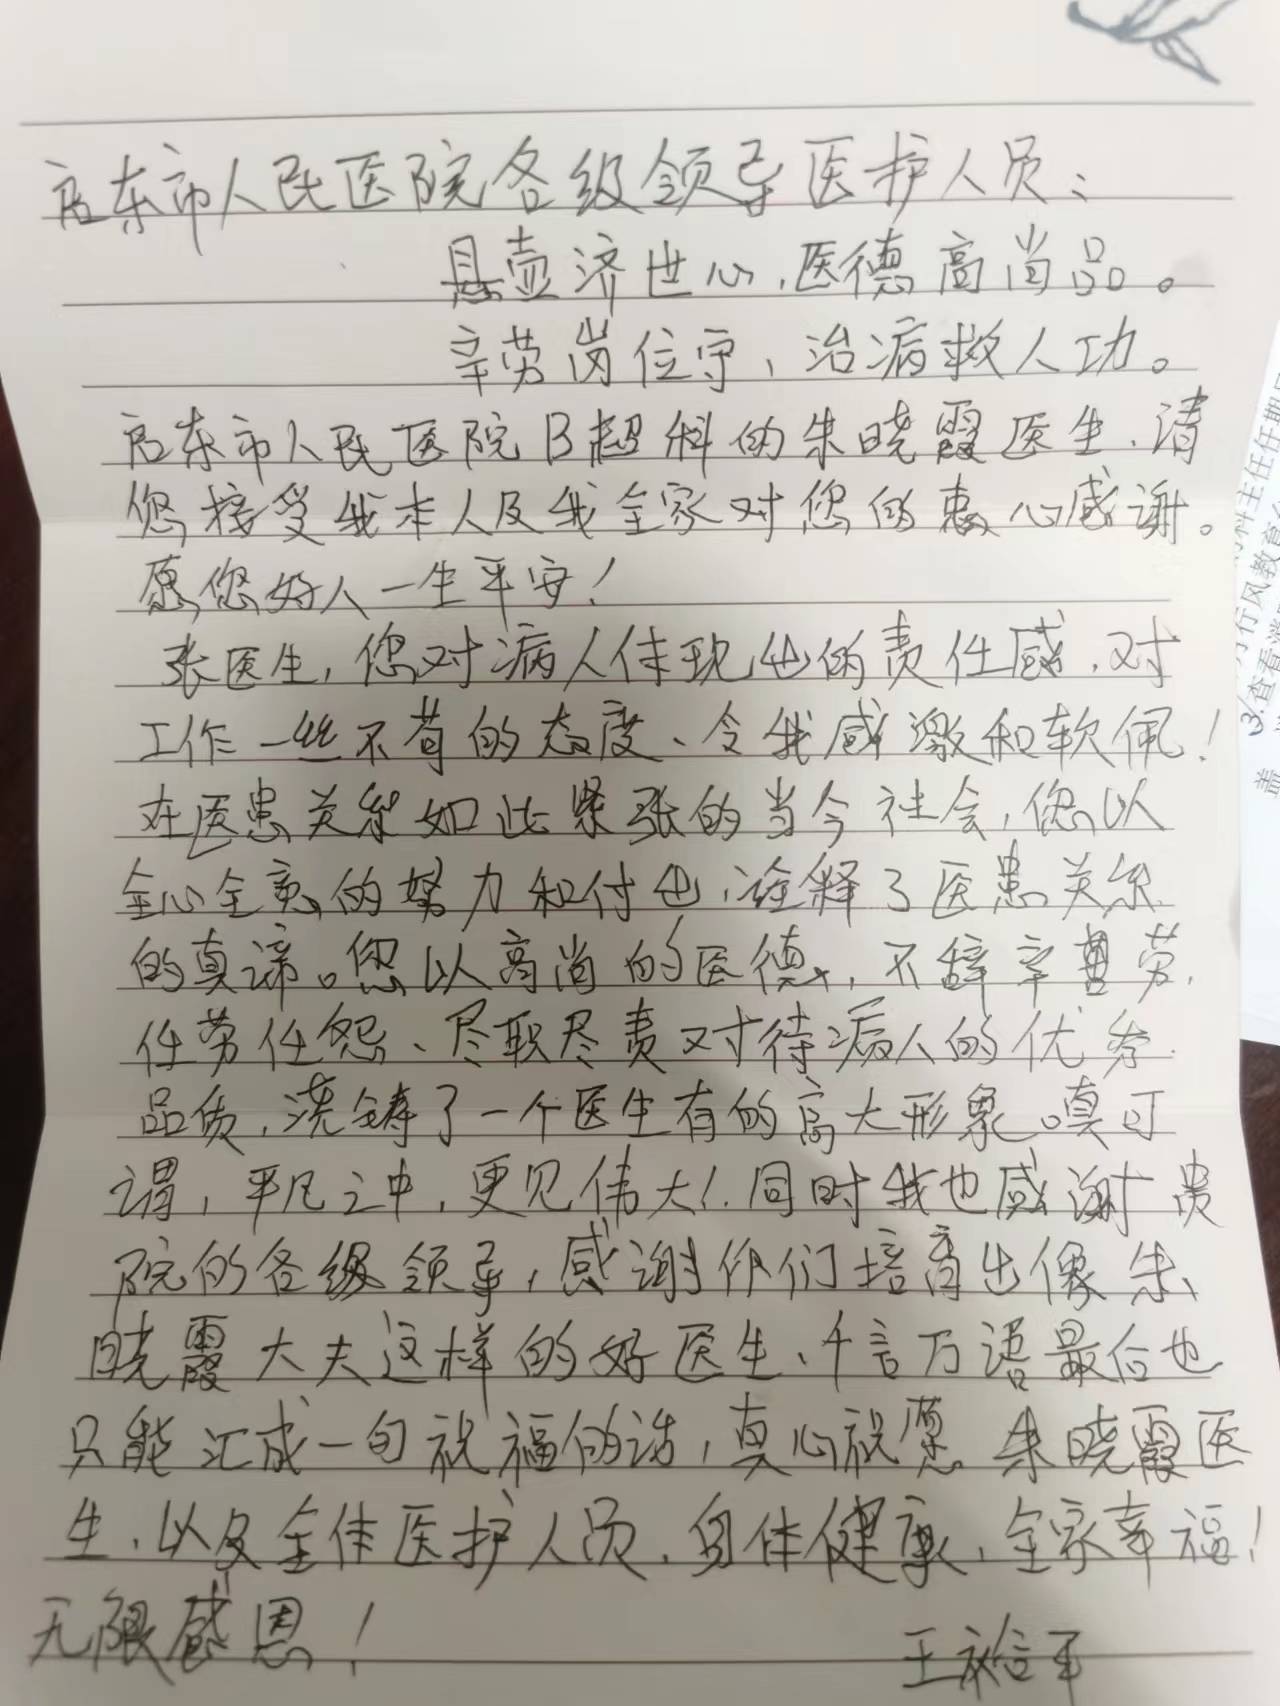 启东市人民医院各级领导医护人员:
悬壶济世心,医德高尚品。
辛劳岗位守,治病救人功。
启东市人民医院B超科的朱晓霞医生,请
您接受我本人及我全家对您的衷心感谢。
愿您好人一生平安!
张医生,您对病人体现出的责任感,对
工作一丝不苟的态度、令我感激和软佩!
在医患关系如此紧张的当今社会,您以
全心全意的努力和付出,诠释了医患关系
的真谛。您以高尚的医德,不辞辛劳,
任劳任怨、尽职尽责对待病人的优秀
品质,浇铸了一个医生有的高大形象。真可
谓,平凡之中,更见伟大!.同时我也感谢贵
院的各级领导,感谢你们培育出像朱
晓霞大夫这样的好医生、千言万语最后也
只能汇成一句祝福的话,真心祝愿朱晓霞医
生,以及全体医护人员,身体健康,全家幸福!
无限感恩!
王
科主任任期
行风教育
3/查看